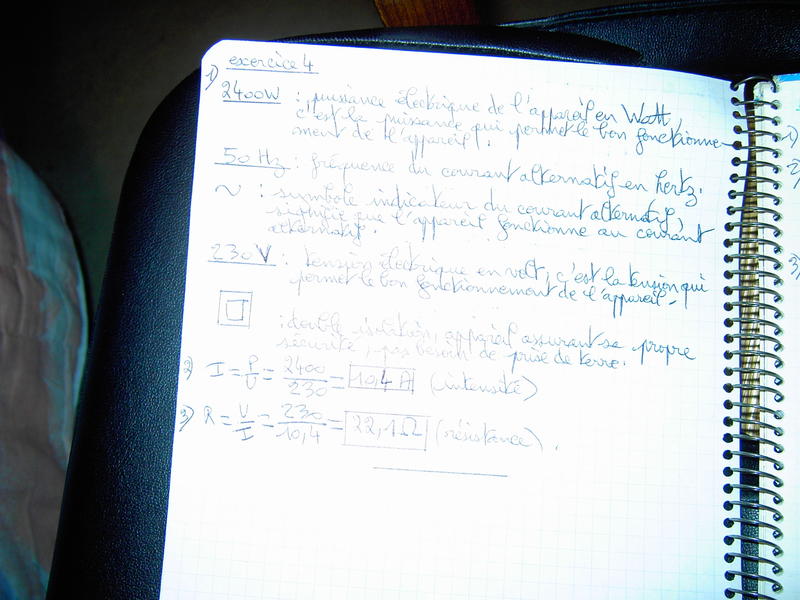 exercice 4
1)
2400W : puissance électrique de l'appareil en Watt,
c'est la puissance qui permet le bon fonctionne-
ment de l'appareil.
50 Hz : fréquence du courant alternatif en hertz.
~ : symbole indicateur du courant alternatif,
signifie que l'appareil fonctionne au courant
alternatif.
230V : tension électrique en volt, c'est la tension qui
permet le bon fonctionnement de l'appareil.
: double isolation, appareil assurant sa propre
sécurité, pas besoin de prise de terre.
2) I = P/U = 2400/230 = 10,4 A (intensité)
3) R = U/I = 230/10,4 = 22,1 Ω (résistance).
1)
2)
3)